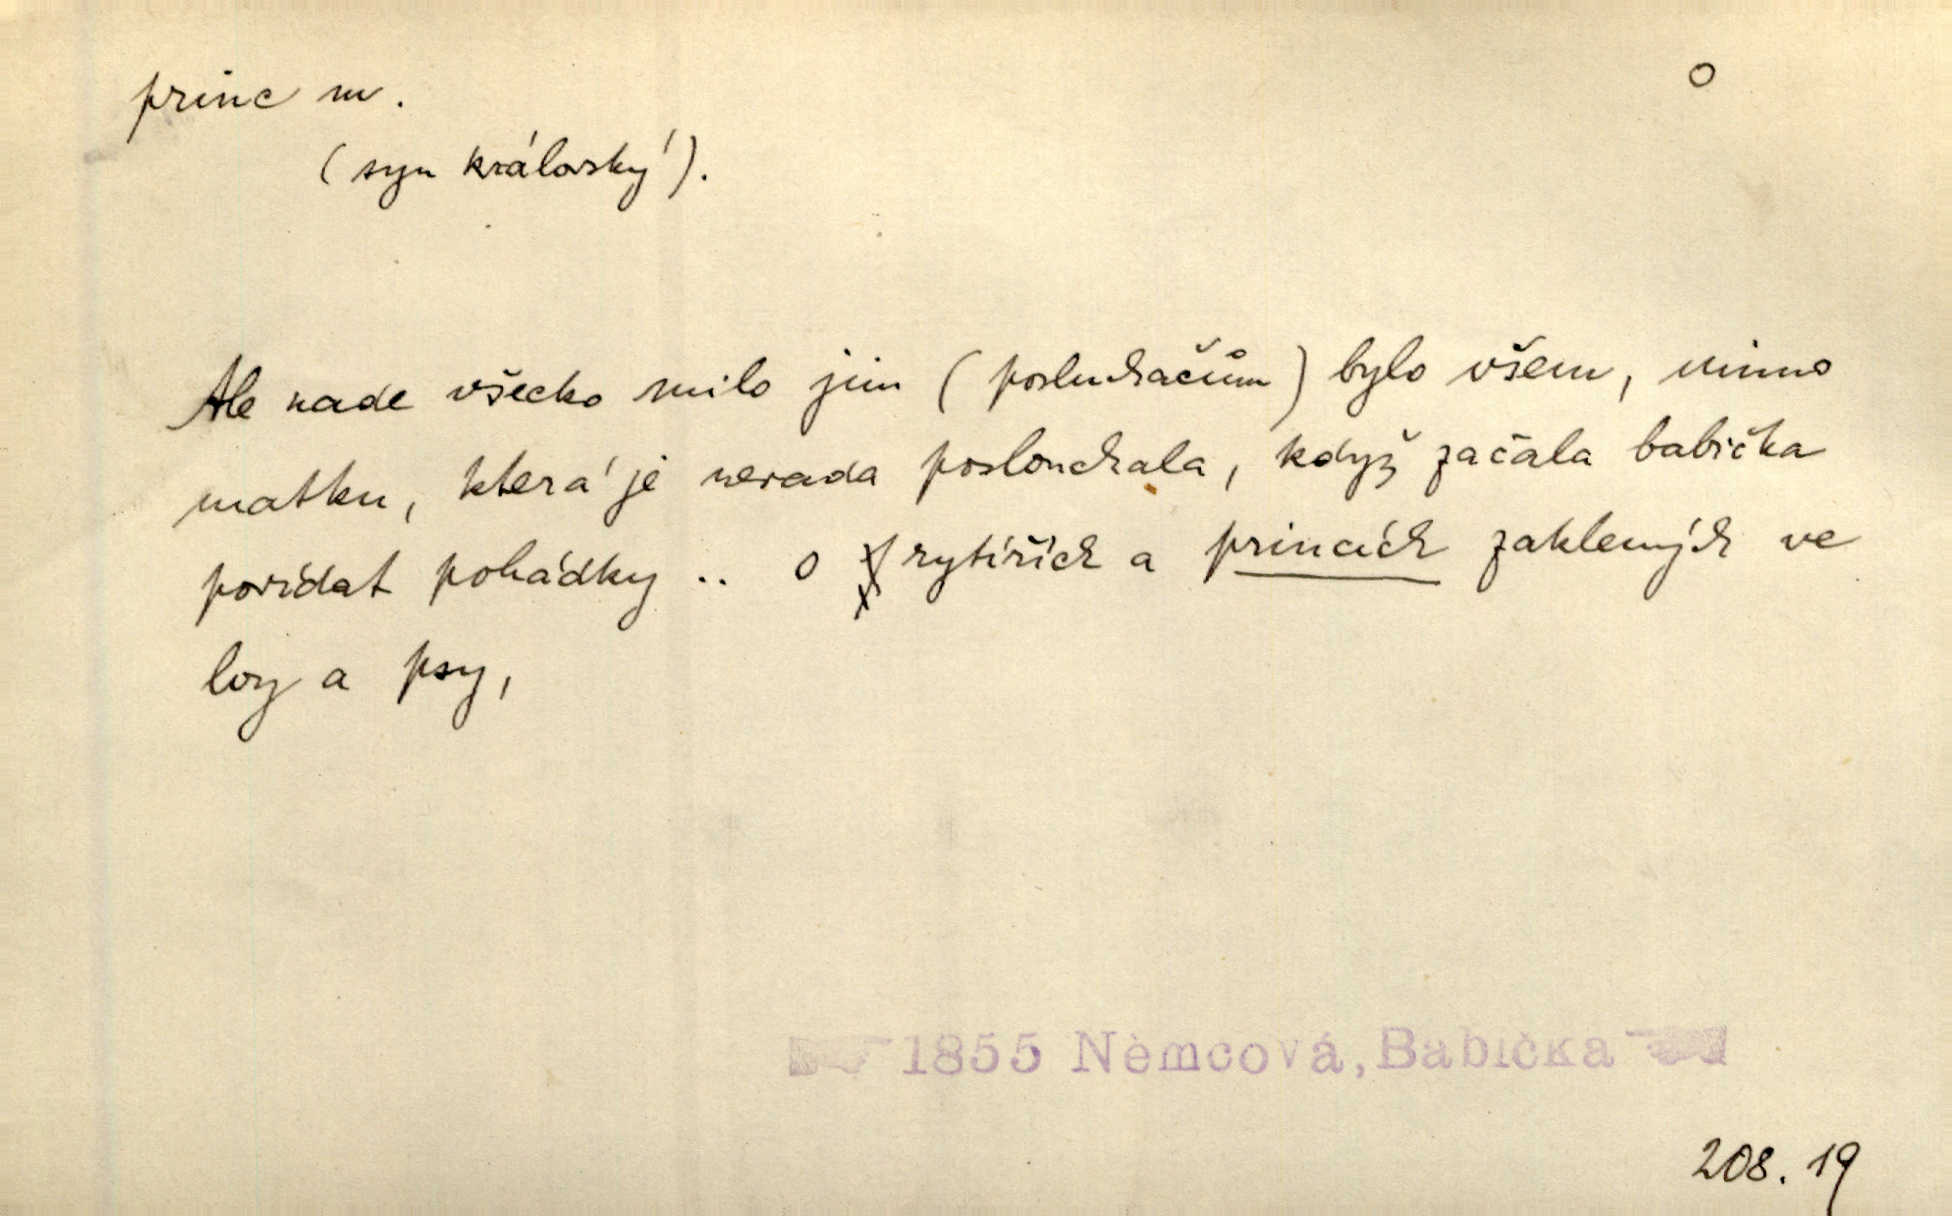 princ m.
o
(syn královský).
Ale nade všecko milo jim (posluchačům) bylo všem, mimo
matku, která je nerada poslouchala, když začala babička
povídat pohádky .. o rytířích a princích zaklených ve
lvy a psy,
1855 Němcová, Babička
208. 19